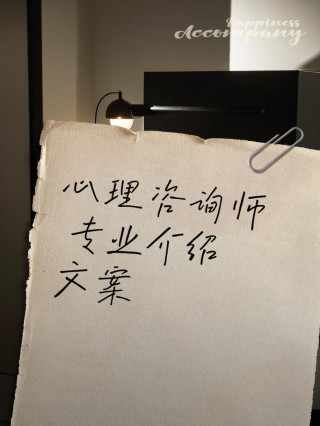 Happiness
Accompany
心理咨询师
专业介绍
文案